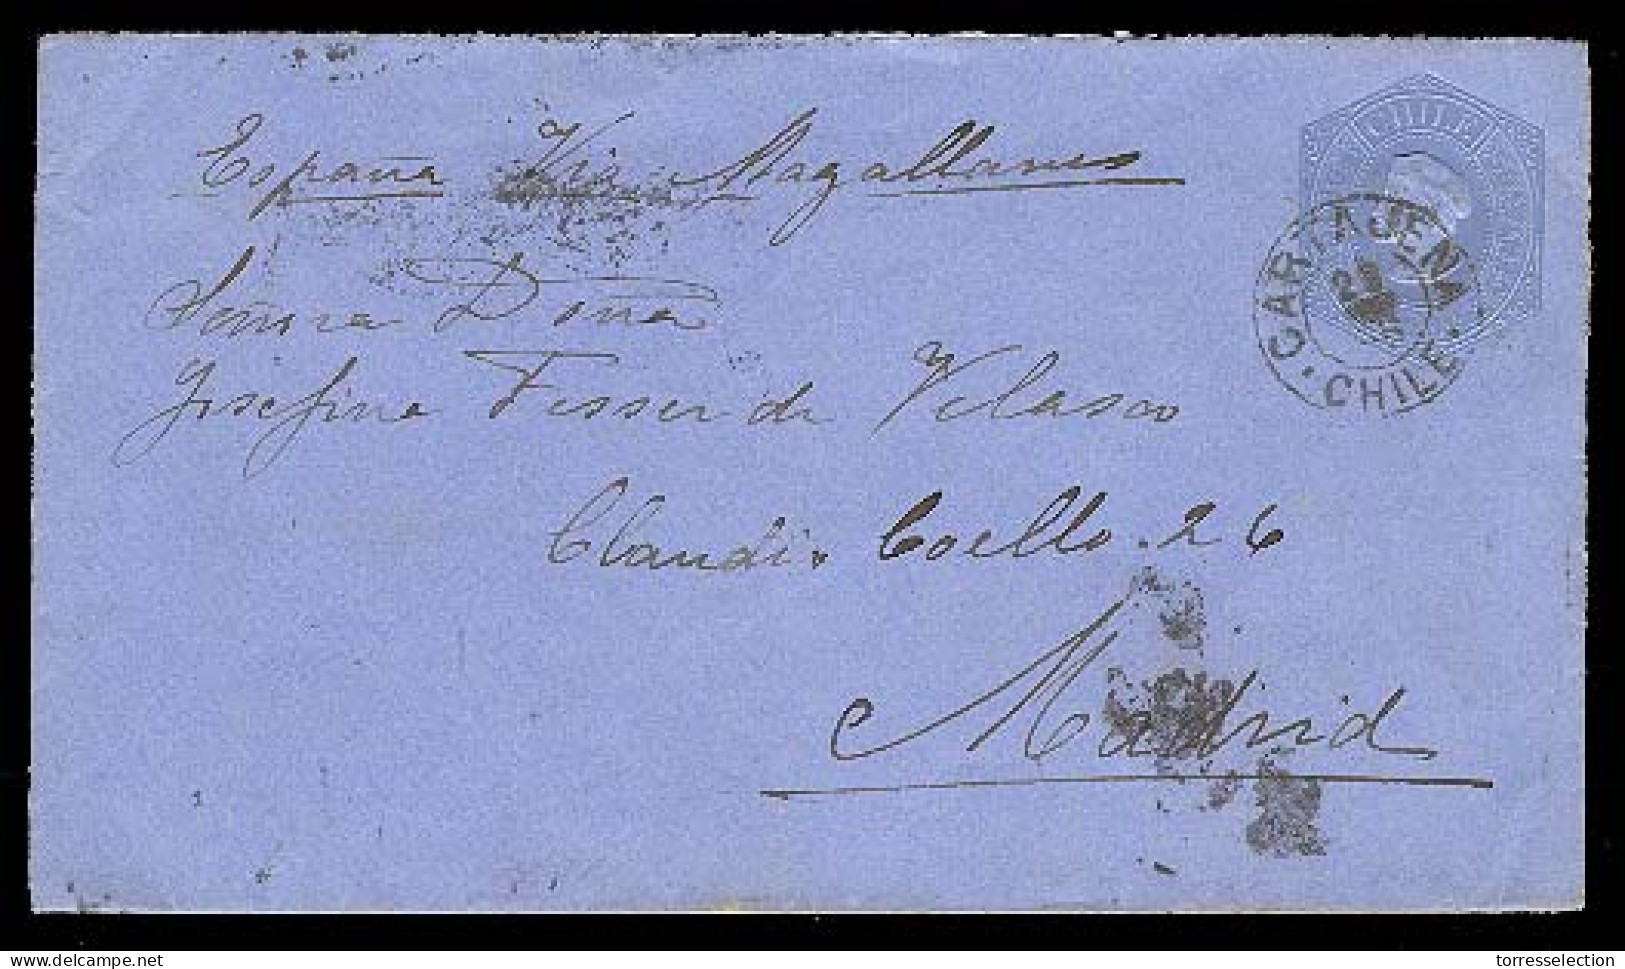 España Via Magallanes
CHILE
CARTAJENA
28
CHILE
Señora Doña
Josefina Fesser de Velasco
Claudio Coello. 26
Madrid
delcampe.net
torresselection